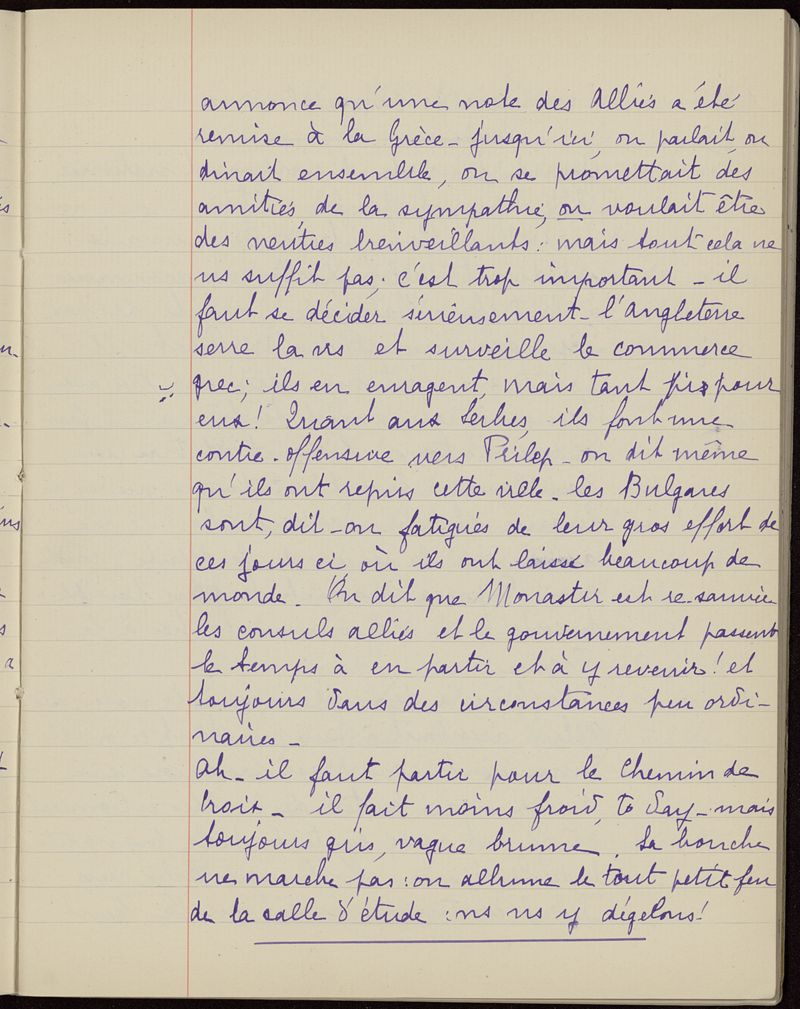 annonce qu'une note des Alliés a été
remise à la Grèce - jusqu'ici, on parlait, on
dînait ensemble, on se promettait des
amitiés, de la sympathie, on voulait être
des neutres bienveillants : mais tout cela ne
ns suffit pas ; c'est trop important - il
faut se décider sérieusement - l'Angleterre
serre la vis et surveille le commerce
grec ; ils en enragent, mais tant pis pour
eux ! Quant aux Serbes, ils font une
contre-offensive vers Perlep - on dit même
qu'ils ont repris cette ville - les Bulgares
sont, dit-on fatigués de leur gros effort de
ces jours ci, où ils ont laissé beaucoup de
monde - On dit que Monastir est re-sauvée
les consuls alliés et le gouvernement passent
le temps à en partir et à y revenir ! et
toujours dans des circonstances peu ordi-
naires -
Ah - il faut partir pour le Chemin de
Croix - il fait moins froid, to day - mais
toujours gris, vague brume. La bouche
ne marche pas : on allume le tout petit feu
de la salle d'étude : ns ns y dégelons !